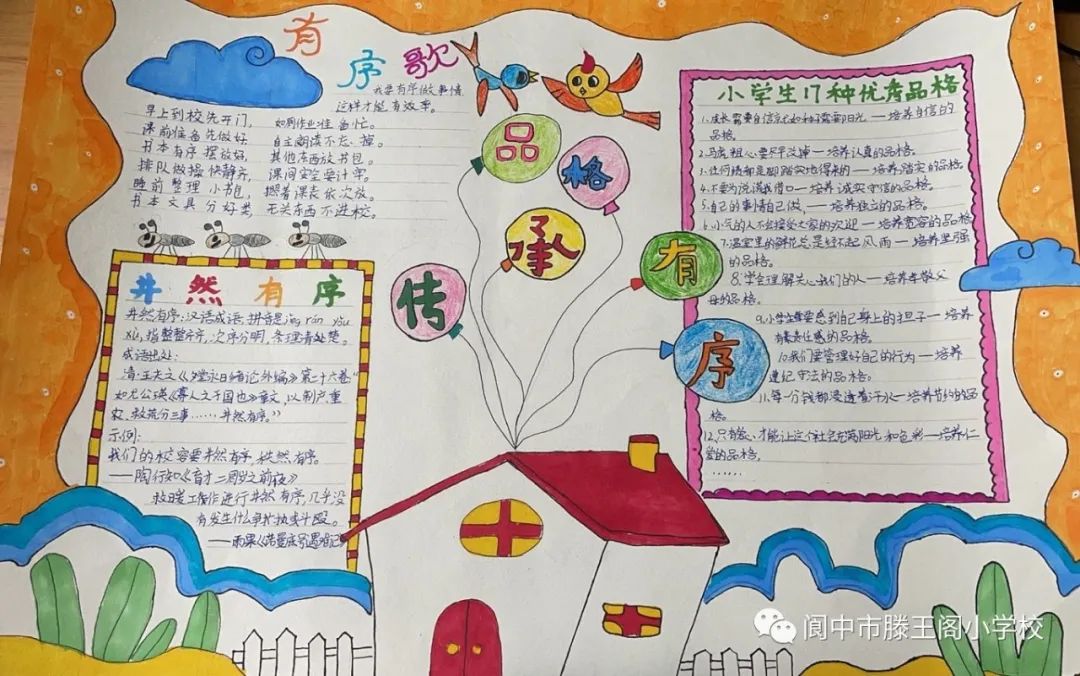 有序歌
我要有序做事情,
这样才能有效率。
早上到校先开门,
课前准备先做好
书本有序摆放好,
排队做操快静齐,
睡前整理小书包,
书本文具分好类
如厕作业准备忙。
自主朗读不忘掉。
其他东西放书包。
课间安全要计牢。
照着课表依次放。
无关东西不进校。
品格
承
传
有
序
井然有序
井然有序:汉语成语,拼音是jǐng rán yǒu
xù,指整整齐齐,次序分明,条理清楚。
成语出处:
清·王夫之《夕堂永日绪论外编》第二十六卷"
如尤公瑛《寡人之于国也》章文,以制产重
农、救荒分三事……井然有序。"
示例:
我们的校容要井然有序,秩然有序。
——陶行知《育才二周岁之前夜》
救援工作进行井然有序,几乎没
有发生什么争执或斗殴。
——雨果《诺曼底号遇难记》
小学生17种优秀品格
1.成长需要自信就如种子需要阳光——培养自信的
品格。
2.马虎粗心要尽早改掉——培养认真的品格。
3.任何成绩都是脚踏实地得来的——培养踏实的品格。
4.不要为说谎找借口——培养诚实守信的品格。
5.自己的事情自己做,——培养独立的品格。
6.小气的人不会接受大家的欢迎——培养宽容的品格。
7.温室里的鲜花总是经不起风雨——培养坚强
的品格。
8.学会理解关心我们的人——培养孝敬父
母的品格。
9.小学生要感到自己身上的担子——培养
有责任感的品格。
10.我们要管理好自己的行为——培养
遵纪守法的品格。
11.每一分钱都浸透着汗水——培养节约的品
格。
12.只有爱,才能让这个社会充满阳光和色彩——培养仁
爱的品格。
……
阆中市滕王阁小学校